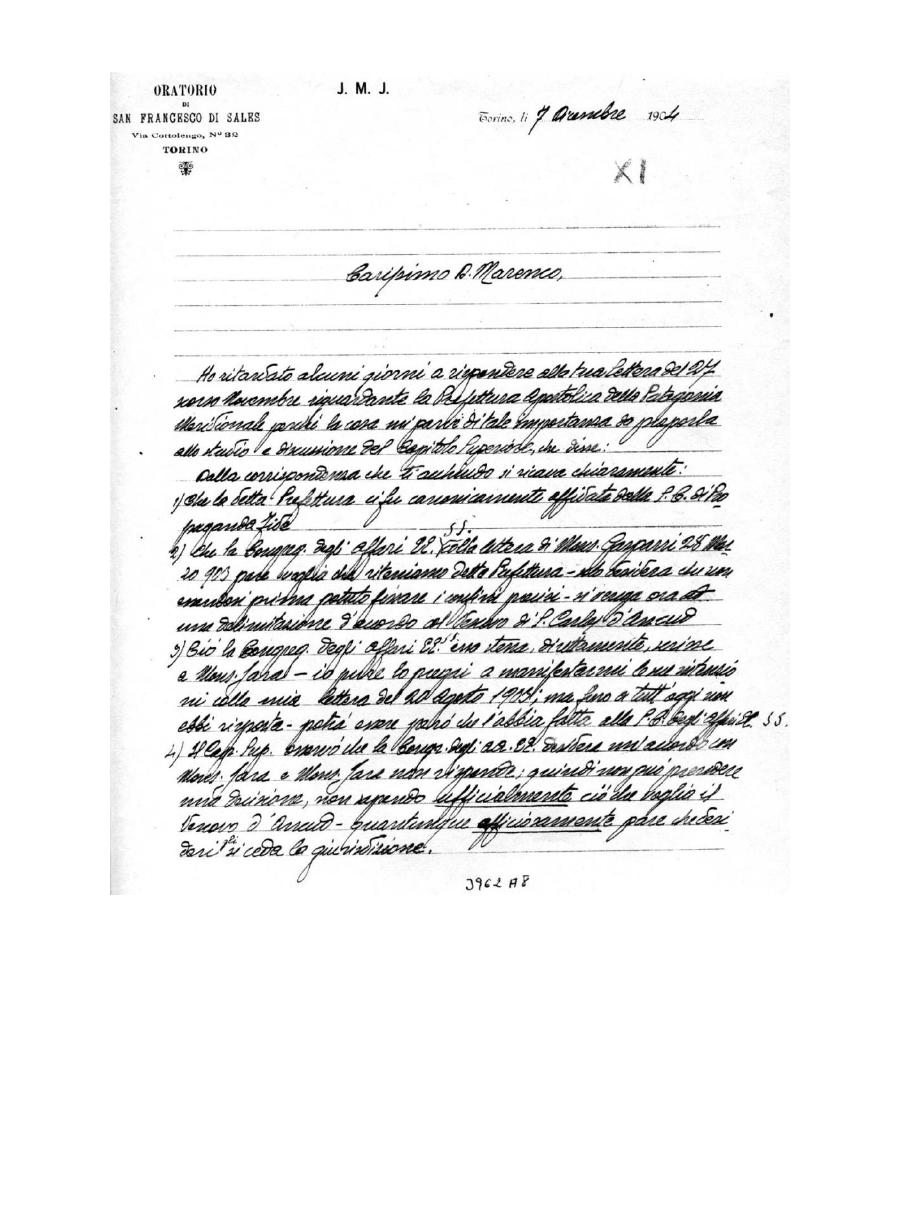 ORATORIO
DI
SAN FRANCESCO DI SALES
Via Cottolengo, Nº 32
TORINO
J. M. J.
Torino, li 7 Dicembre 1904
XI
Carissimo D. Marenco,
Ho ritardato alcuni giorni a rispondere alla tua lettera del 27
scorso Novembre riguardante la Prefettura Apostolica della Patagonia
Meridionale perché la cosa mi parve di tale importanza da proporla
allo studio e discussione del Capitolo Superiore, che disse:
Dalla corrispondenza che ti acchiudo si ricava chiaramente:
1) Che la detta Prefettura ci fu canonicamente affidata dalla S. C. di Pro
paganda Fide
2) Che la Congreg. degli affari EE. SS. colla lettera di Mons. Gasparri 28 Mar
zo 903 pare voglia che riteniamo detta Prefettura - solo desidera che non
essendosi prima potuto fissare i confini precisi - si venga ora ad
una delimitazione d'accordo col Vescovo di S. Carlos d'Ancud
3) Ciò la Congreg. degli affari EE. essa stessa, direttamente, scrisse
a Mons. Jara - io pure lo pregai a manifestarmi le sue intenzio
ni colla mia lettera del 20 Agosto 1903; ma fino a tutt'oggi non
ebbi risposta - potrà essere però che l'abbia fatta alla S. C. degli affari EE. SS.
4) Il Cap. Sup. osservò che la Congr. degli aa. EE. desidera un accordo con
Mons. Jara e Mons. Jara non risponde; quindi non può prendere
una decisione, non sapendo ufficialmente ciò che voglia il
Vescovo d'Ancud - quantunque officiosamente pare che desi
deri gli si ceda la giurisdizione.
3962 A8